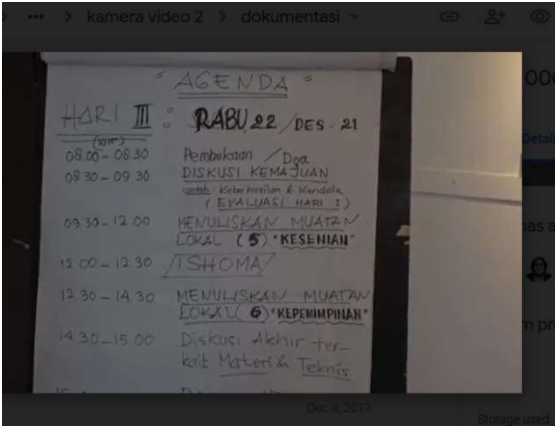 kamera video 2 > dokumentasi
"AGENDA"
HARI III : RABU 22/DES-21
08.00 - 08.30 Pembukaan / Doa
08.30 - 09.30 DISKUSI KEMAJUAN
contoh: Keberhasilan & Kendala
(EVALUASI HARI I)
09.30 - 12.00 MENULISKAN MUATAN
LOKAL (5) "KESENIAN"
12.00 - 12.30 /ISHOMA/
12.30 - 14.30 MENULISKAN MUATAN
LOKAL (6) "KEPEMIMPINAN"
14.30 - 15.00 Diskusi Akhir ter-
kait Materi & Teknis
Dec 4, 2017
Storage used